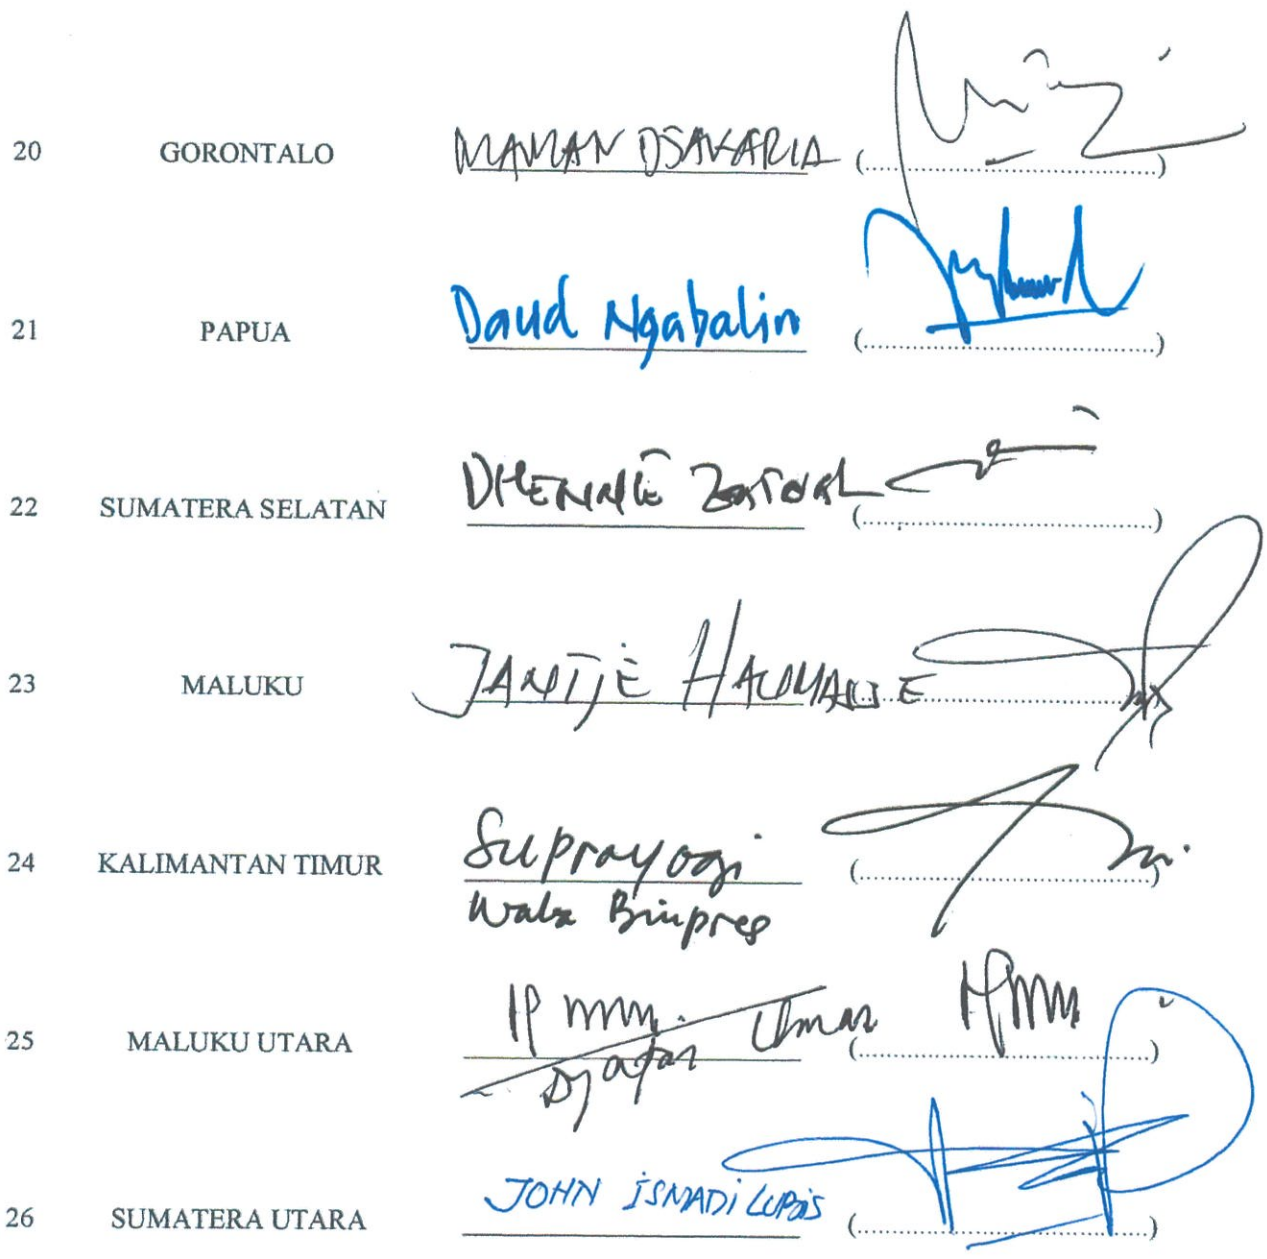 20 GORONTALO MAMAN DJAKARIA (....................)
21 PAPUA Daud Ngabalin (....................)
22 SUMATERA SELATAN DHENNIE (....................)
23 MALUKU JANTJE (....................)
24 KALIMANTAN TIMUR Suprayogi (....................)
Waka Binpres
25 MALUKU UTARA Umar (....................)
Djafar
26 SUMATERA UTARA JOHN ISMADI LUBIS (....................)